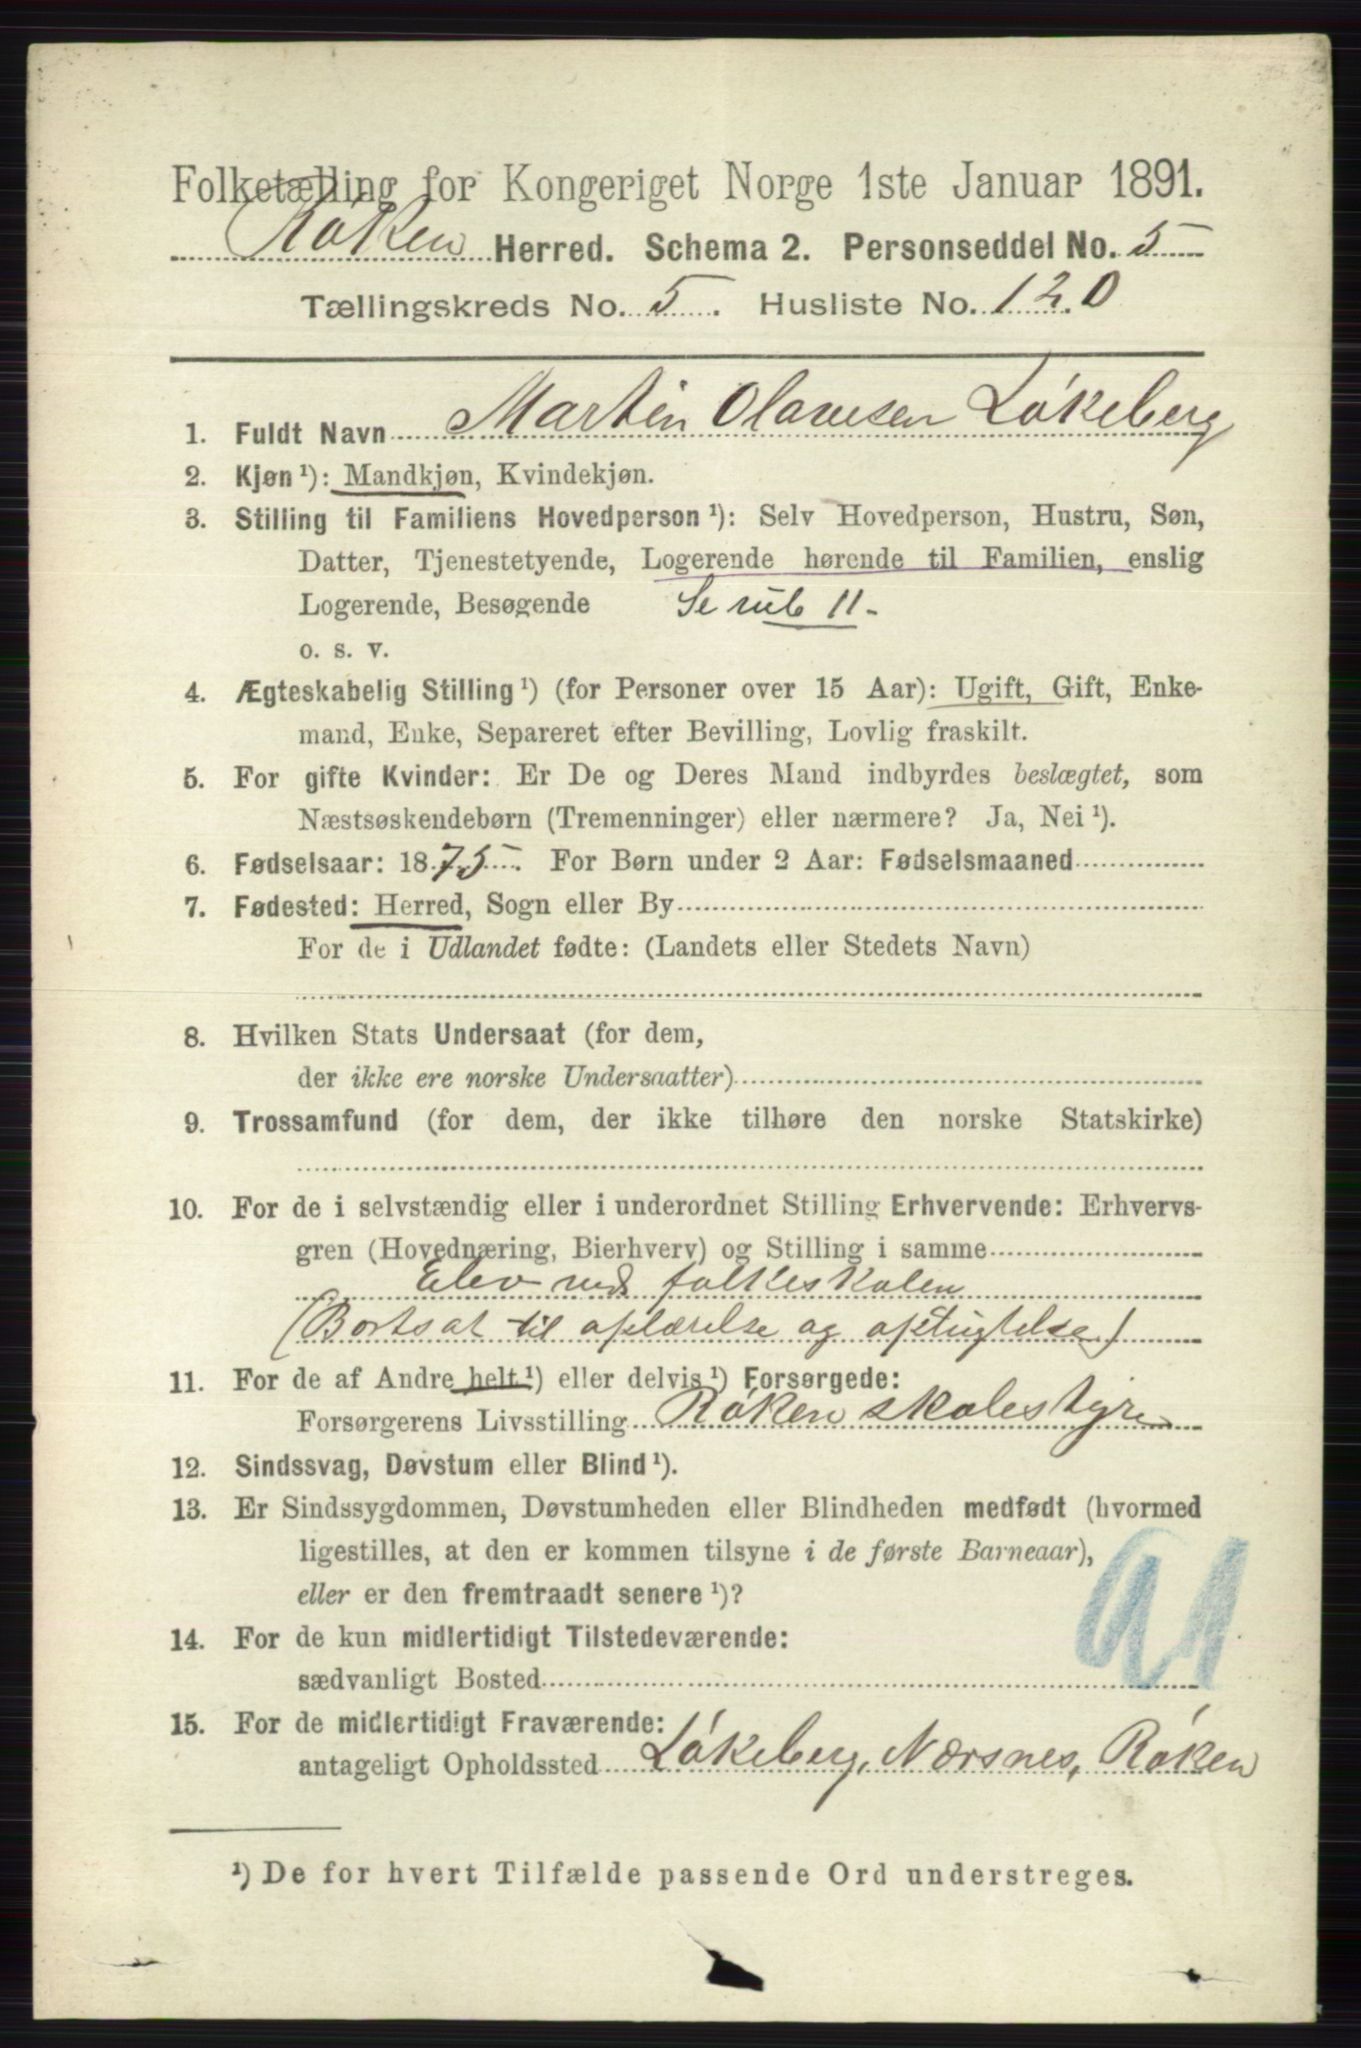 Folketælling for Kongeriget Norge 1ste Januar 1891.
Røken Herred. Schema 2. Personseddel No. 5
Tællingskreds No. 5. Husliste No. 120
1. Fuldt Navn Martin Olavesen Løkeberg
2. Kjøn¹): Mandkjøn, Kvindekjøn.
3. Stilling til Familiens Hovedperson¹): Selv Hovedperson, Hustru, Søn,
Datter, Tjenestetyende, Logerende hørende til Familien, enslig
Logerende, Besøgende Se rub 11-
o. s. v.
4. Ægteskabelig Stilling¹) (for Personer over 15 Aar): Ugift, Gift, Enke-
mand, Enke, Separeret efter Bevilling, Lovlig fraskilt.
5. For gifte Kvinder: Er De og Deres Mand indbyrdes beslægtet, som
Næstsøskendebørn (Tremenninger) eller nærmere? Ja, Nei¹).
6. Fødselsaar: 1875. For Børn under 2 Aar: Fødselsmaaned
7. Fødested: Herred, Sogn eller By
For de i Udlandet fødte: (Landets eller Stedets Navn)
8. Hvilken Stats Undersaat (for dem,
der ikke ere norske Undersaatter)
9. Trossamfund (for dem, der ikke tilhøre den norske Statskirke)
10. For de i selvstændig eller i underordnet Stilling Erhvervende: Erhvervs-
gren (Hovednæring, Bierhverv) og Stilling i samme
Elev ved folkeskolen
(Bortsat til oplærelse og optugtelse)
11. For de af Andre helt¹) eller delvis¹) Forsørgede:
Forsørgerens Livsstilling Røken skolestyre
12. Sindssvag, Døvstum eller Blind¹).
13. Er Sindssygdommen, Døvstumheden eller Blindheden medfødt (hvormed
ligestilles, at den er kommen tilsyne i de første Barneaar),
eller er den fremtraadt senere¹)?
91
14. For de kun midlertidigt Tilstedeværende:
sædvanligt Bosted
15. For de midlertidigt Fraværende:
antageligt Opholdssted Løkeberg, Nærsnes, Røken
¹) De for hvert Tilfælde passende Ord understreges.